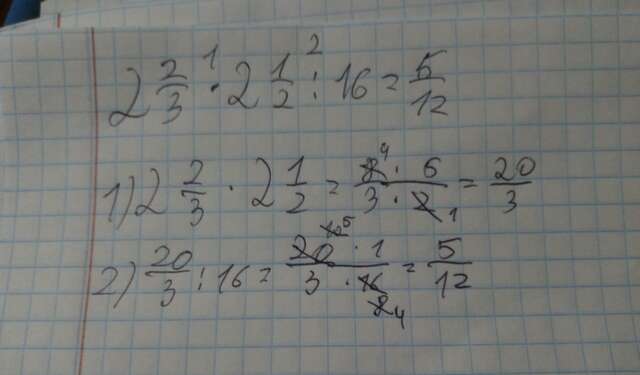 2 2/3 ·¹ 2 1/2 :² 16 = 5/12
1) 2 2/3 · 2 1/2 = 8 4 · 5 / 3 · 2 1 = 20/3
2) 20/3 : 16 = 20 10 5 · 1 / 3 · 16 8 4 = 5/12